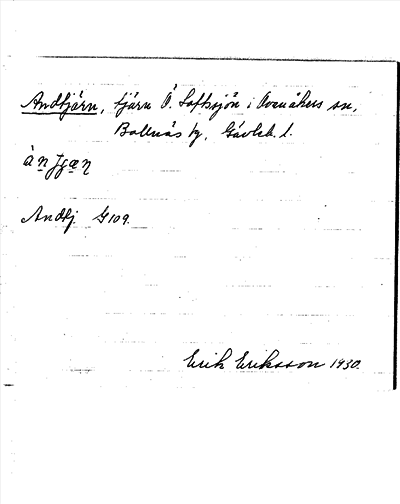 Andtjärn, tjärn Ö. Loftssjön i Ovanåkers sn,
Bollnäs tg, Gävleb. l.
Andtj G109.
Erik Eriksson 1930.